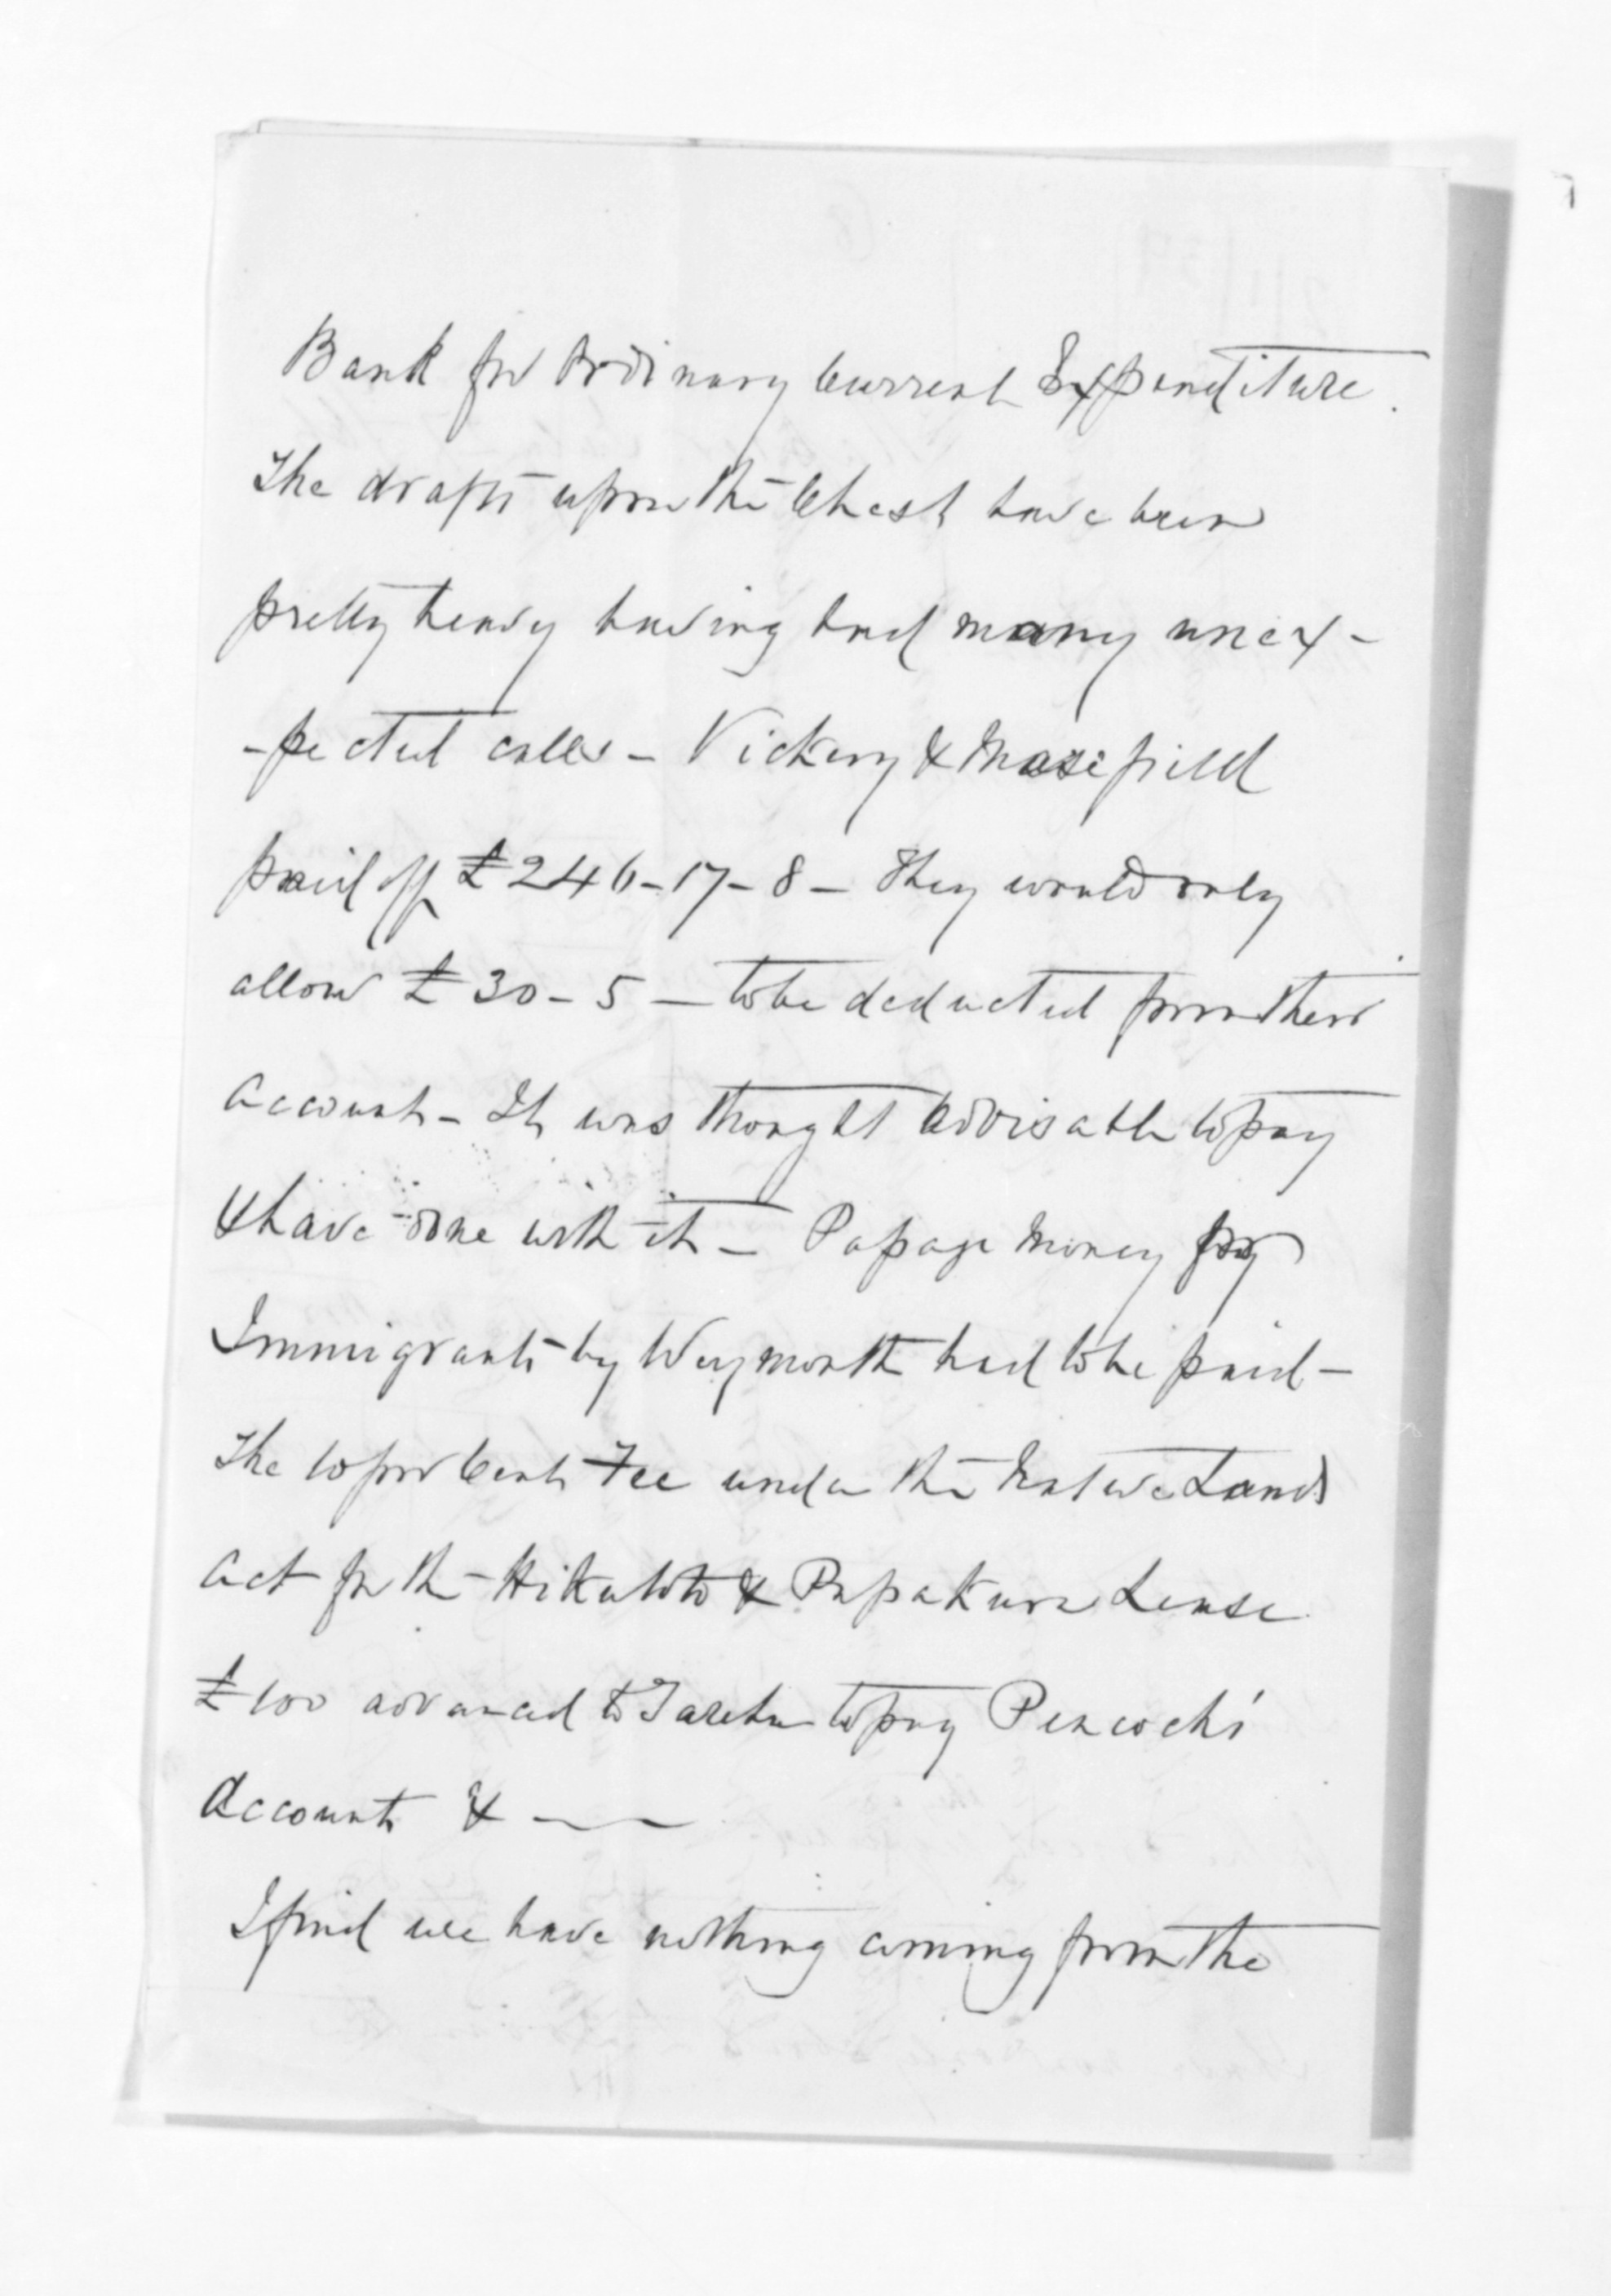 Bank for Ordinary Current Expenditure.
The drafts upon the Chest have been
pretty heavy having had many unex-
-pected calls - Vickery & Masefield
paid off £246-17-8 - They would only
allow £30-5 - to be deducted from their
account - It was thought advisable to pay
& have done with it - Passage Money for
Immigrants by Weymouth had to be paid -
The 10 per Cent Fee under the Native Lands
Act for the Hikutoto & Papakura Lease
£100 advanced to Tareha to pay Peacock's
Account &
I find we have nothing coming from the